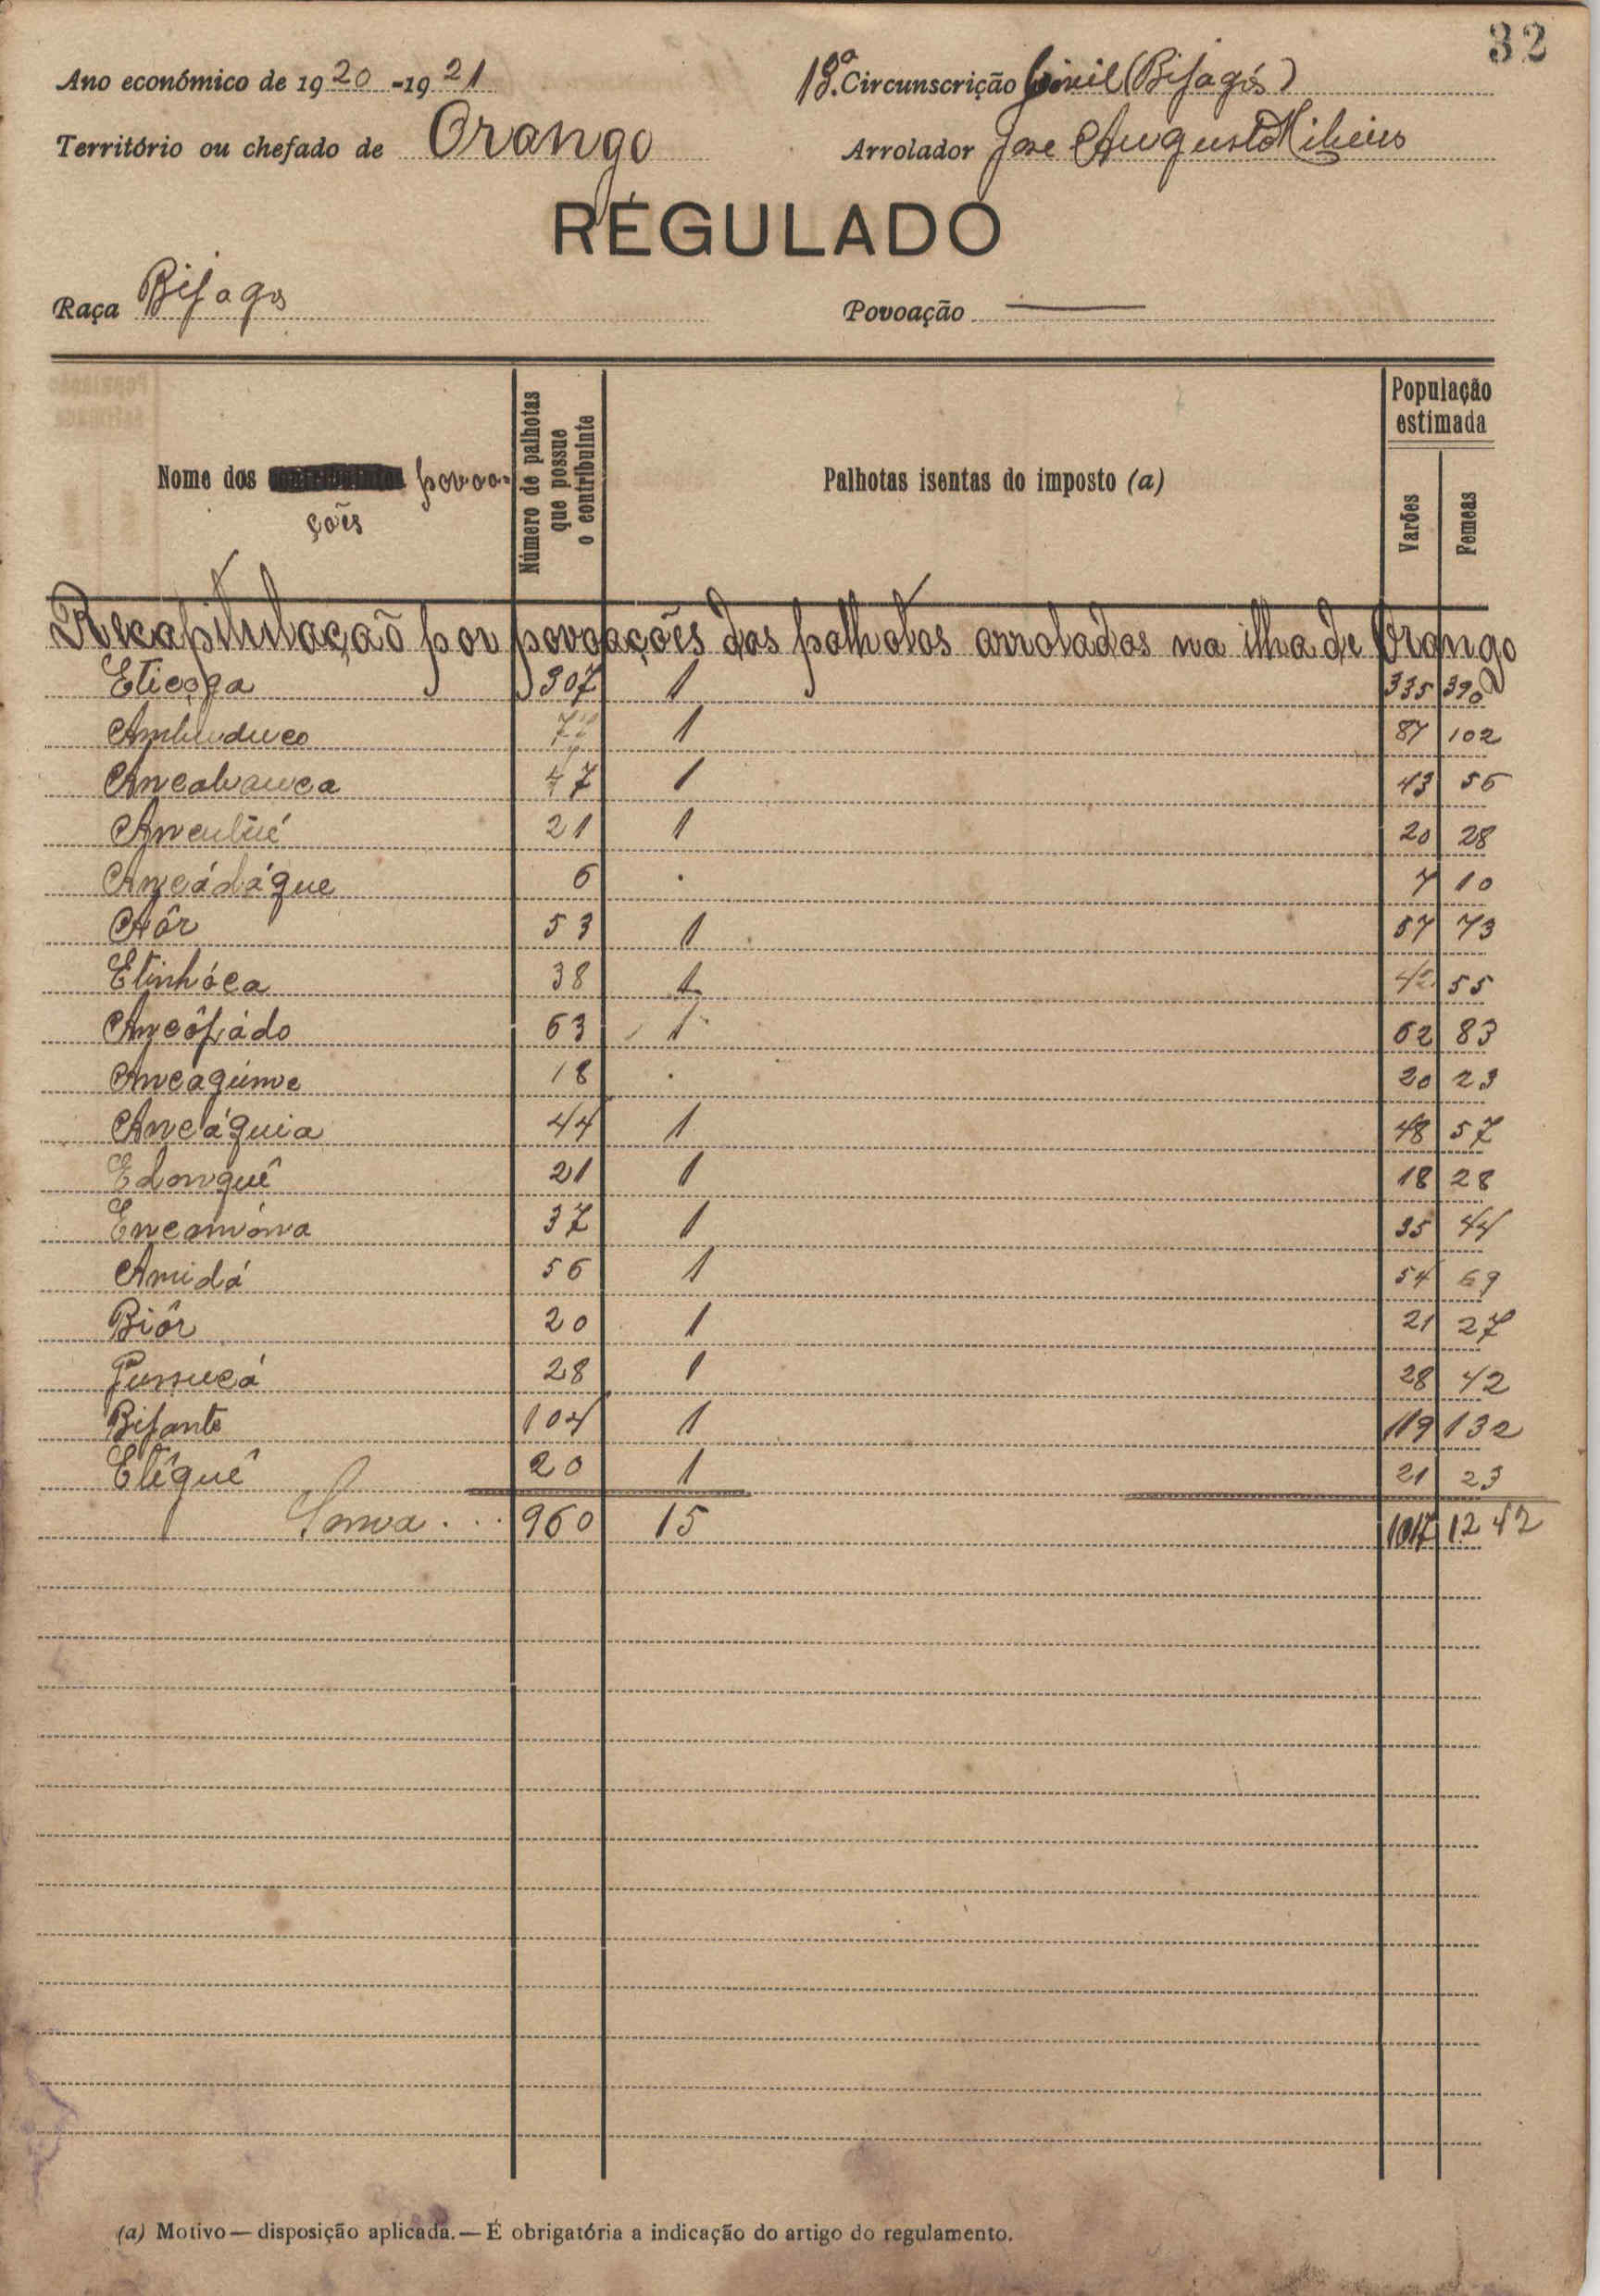 32
Ano económico de 1920-1921
13ª Circunscrição Civil (Bijagós)
Território ou chefado de Orango
Arrolador José Augusto Ribeiro
REGULADO
Raça Bijagos
Povoação ———
Nome dos povoações
Número de palhotas que possue o contribuinte
Palhotas isentas do imposto (a)
População estimada
Varões
Femeas
Recapitulação por povoações das palhotas arroladas na ilha de Orango
Eticoga 307 1 335 390
Ambuduco 77 1 87 102
Ancabauca 47 1 43 56
21 1 20 28
Ancádáque 6 . 7 10
Aôr 53 1 57 73
Etinhóca 38 1 42 55
Ancôpádo 63 1 62 83
Ancagume 18 . 20 23
Ancáquia 44 1 48 57
Edonguê 21 1 18 28
37 1 35 44
Amidá 56 1 54 69
Biôr 20 1 21 27
28 1 28 42
Bijante 104 1 119 132
Etêguê 20 1 21 23
Soma... 960 15 1017 1242
(a) Motivo — disposição aplicada. — É obrigatória a indicação do artigo do regulamento.